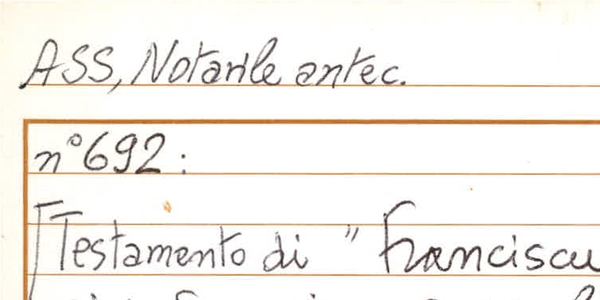 ASS, Notarile antec.
n° 692 :
Testamento di " Franciscu